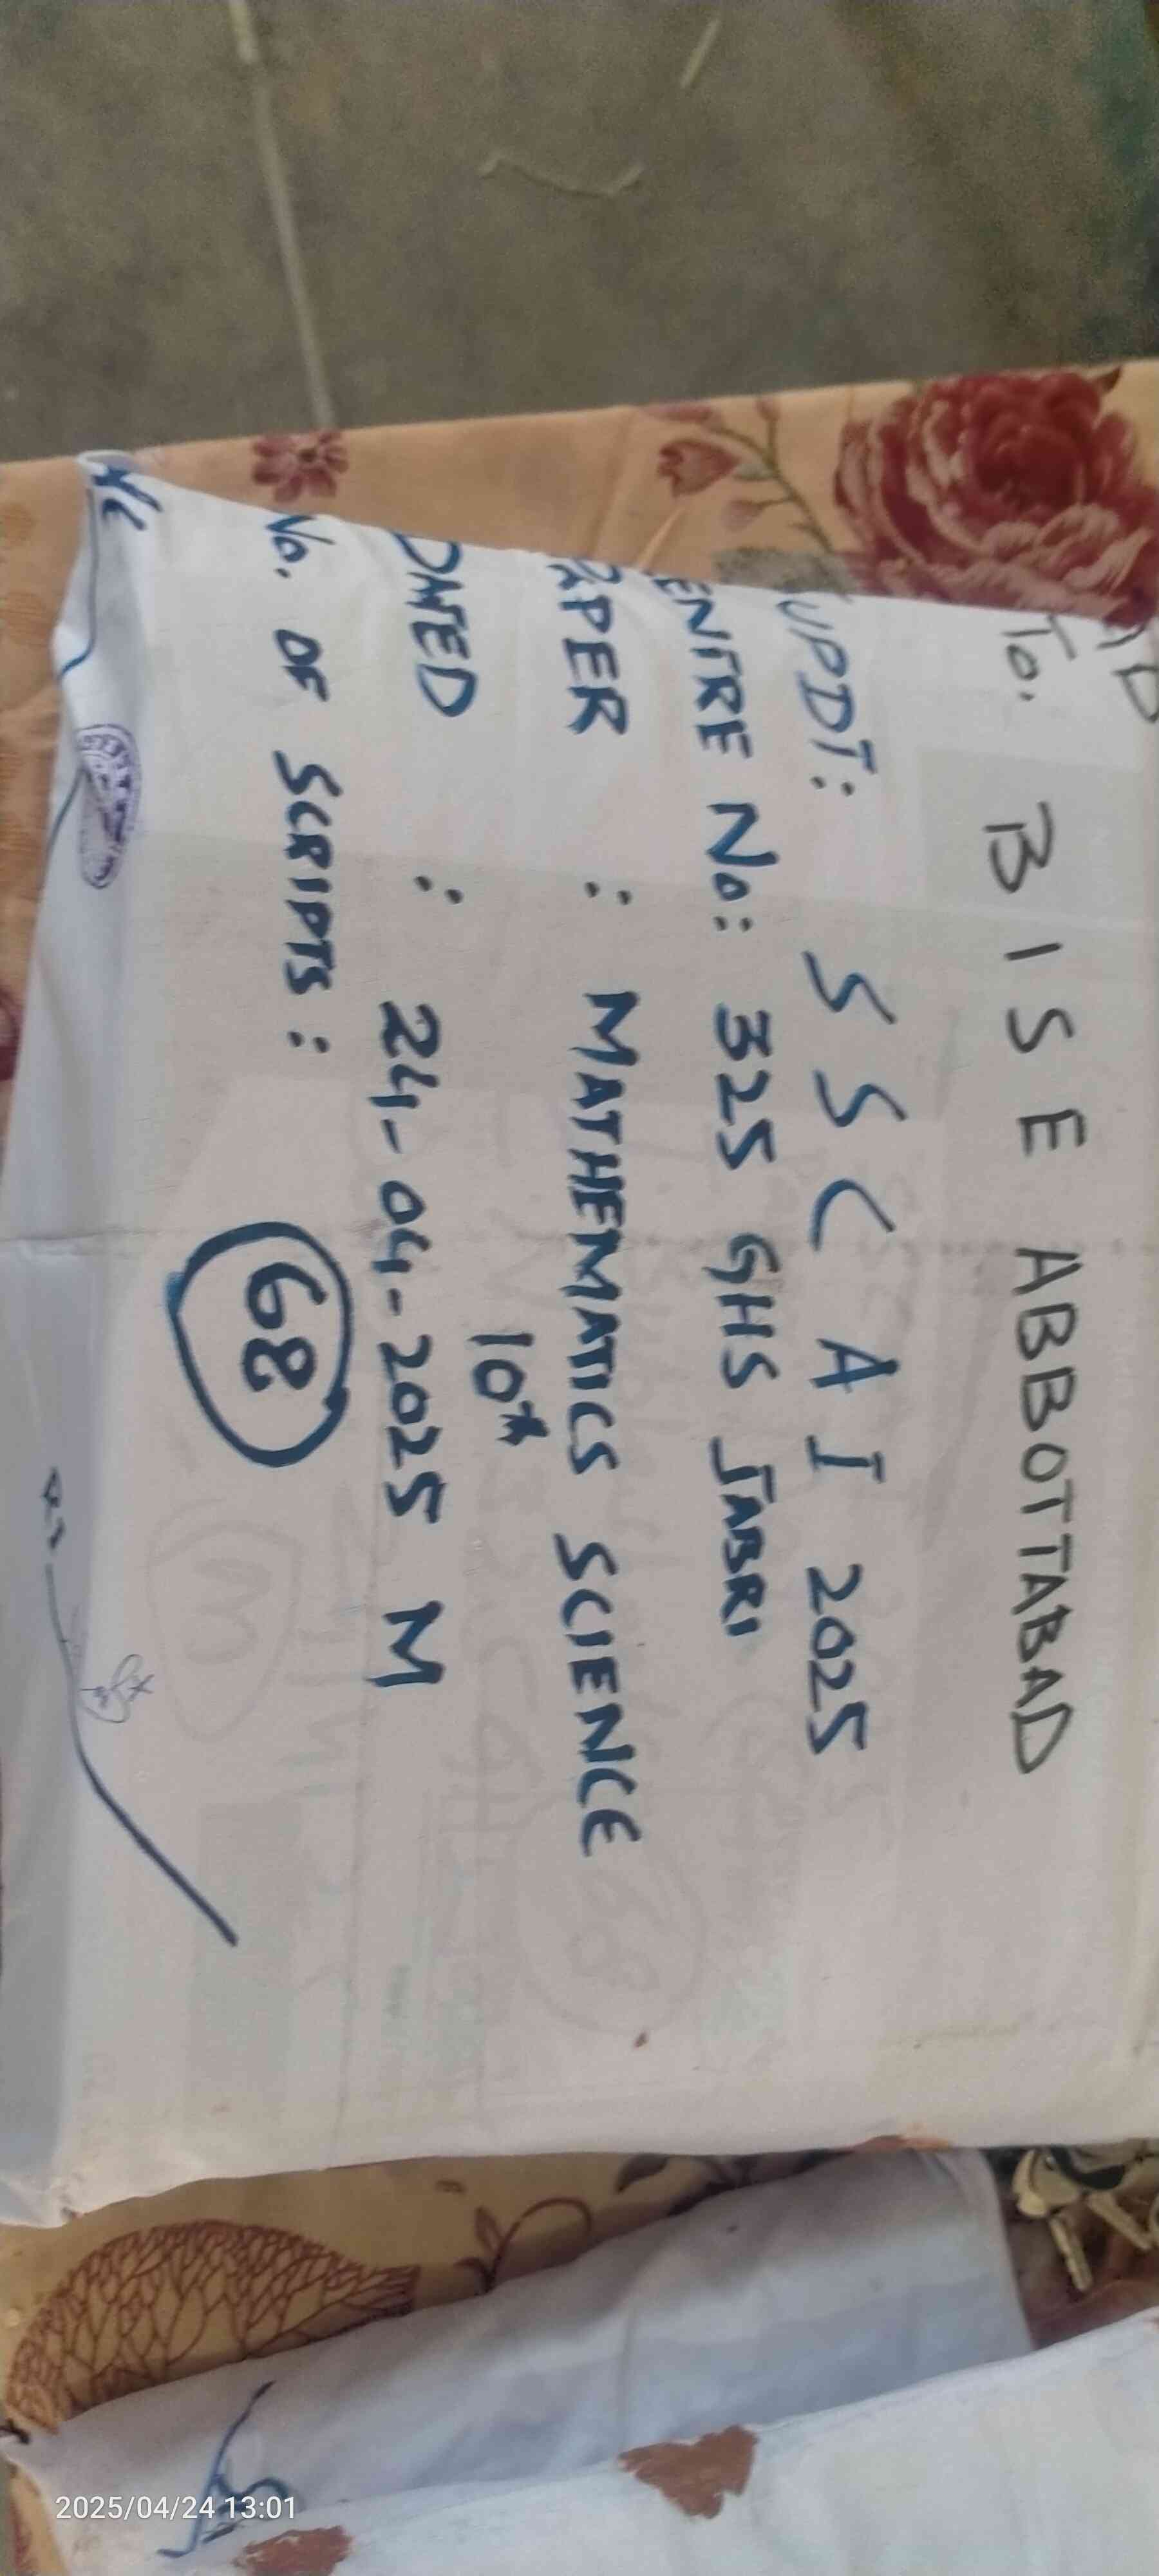 To. BISE ABBOTTABAD
UPDT: SSC A I 2025
ENTRE No: 325 GHS JABRI
APER : MATHEMATICS SCIENCE
10th
DATED : 24-04-2025 M
No. OF SCRIPTS : 68
2025/04/24 13:01